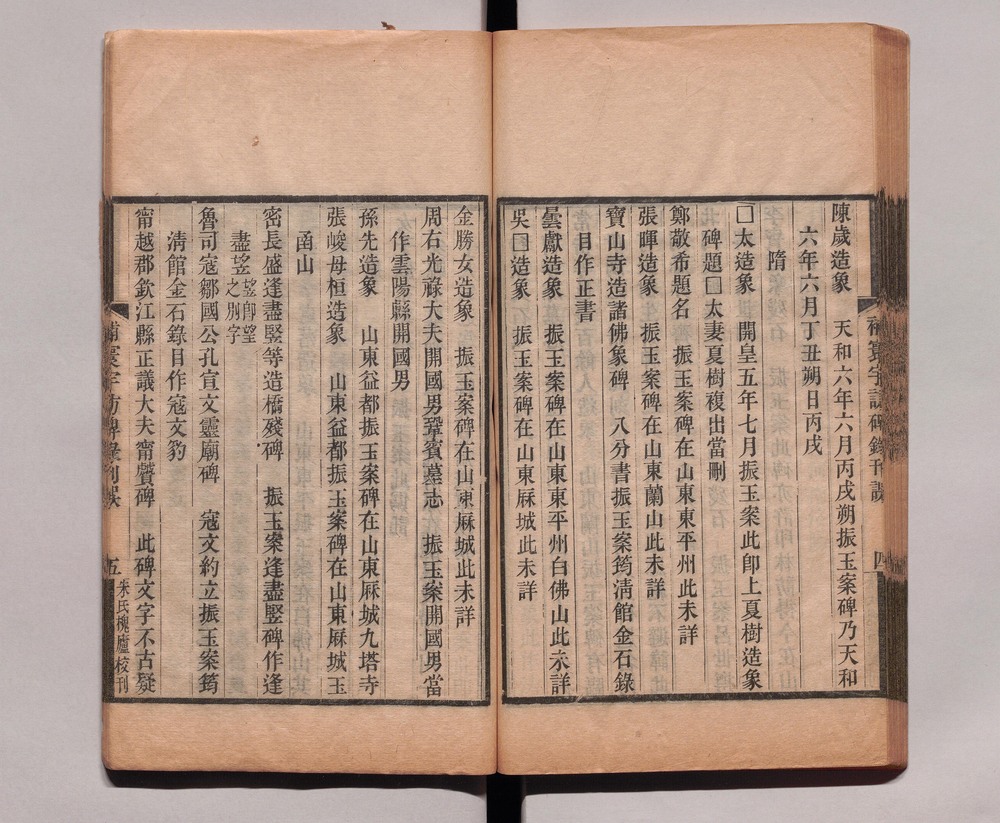 陳歲造象　天和六年六月丙戌朔振玉案碑乃天和
六年六月丁丑朔日丙戌
隋
□太造象　開皇五年七月振玉案此卽上夏樹造象
碑題□太妻夏樹複出當刪
鄭敬希題名　振玉案碑在山東東平州此未詳
張暉造象　振玉案碑在山東蘭山此未詳
寶山寺造諸佛象碑　八分書振玉案筠淸館金石錄
目作正書
曇獻造象　振玉案碑在山東東平州白佛山此未詳
吳□造象　振玉案碑在山東厤城此未詳
四
金勝女造象　振玉案碑在山東厤城此未詳
周右光祿大夫開國男鞏賓墓志　振玉案開國男當
作雲陽縣開國男
孫先造象　山東益都振玉案碑在山東厤城九塔寺
張峻母桓造象　山東益都振玉案碑在山東厤城玉
函山
密長盛逢盡竪等造橋殘碑　振玉案逢盡竪碑作逢
盡䇓䇓卽望
之別字
魯司寇鄒國公孔宣文靈廟碑　寇文約立振玉案筠
淸館金石錄目作寇文豹
甯越郡欽江縣正議大夫甯贙碑　此碑文字不古疑
五
朱氏槐廬校刊